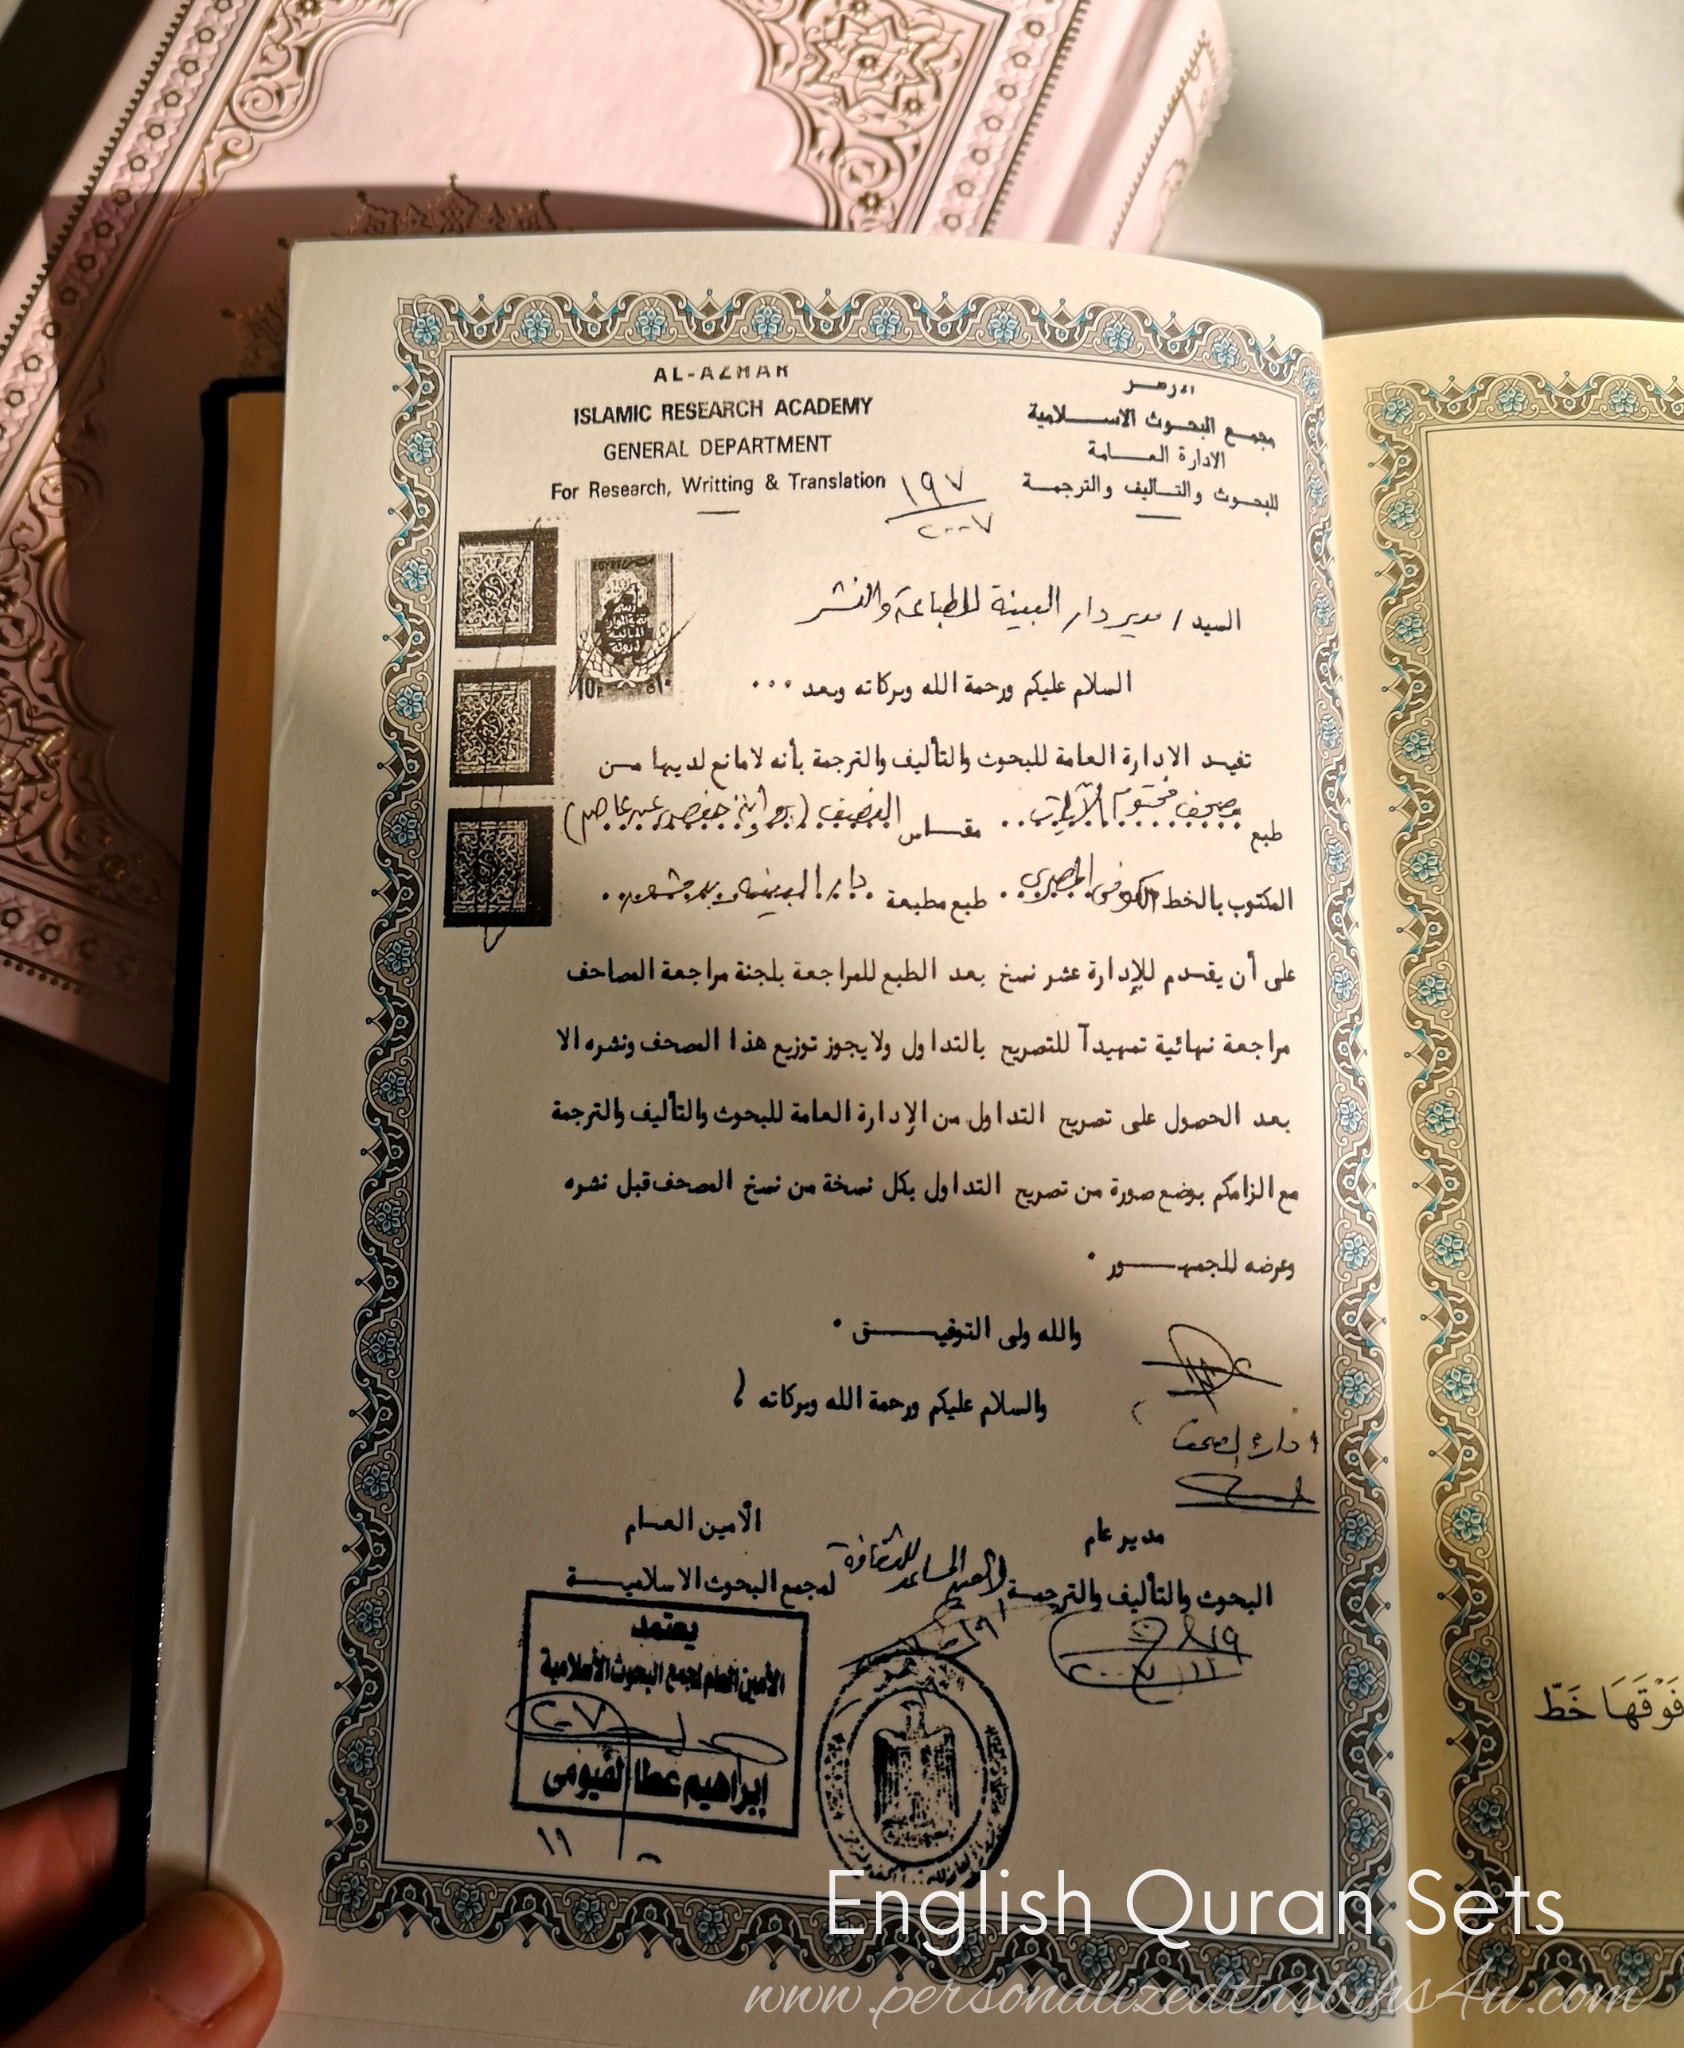 AL-AZHAR
ISLAMIC RESEARCH ACADEMY
GENERAL DEPARTMENT
For Research, Writting & Translation
الازهر
مجمع البحوث الاسلامية
الادارة العامة
للبحوث والتأليف والترجمة
١٩٧
٢٠٠٧
السيد / مدير دار البينة للطباعة والنشر
السلام عليكم ورحمة الله وبركاته وبعد ...
تفيد الادارة العامة للبحوث والتأليف والترجمة بأنه لا مانع لديها من
طبع مصحف مختوم الآيات .. مقاس النصف (برواية حفص عن عاصم)
المكتوب بالخط الكوفى المصرى . طبع مطبعة دار البينة بدمشق ..
على أن يقدم للإدارة عشر نسخ بعد الطبع للمراجعة بلجنة مراجعة المصاحف
مراجعة نهائية تمهيدآ للتصريح بالتداول ولا يجوز توزيع هذا المصحف ونشره الا
بعد الحصول على تصريح التداول من الإدارة العامة للبحوث والتأليف والترجمة
مع الزامكم بوضع صورة من تصريح التداول بكل نسخة من نسخ المصحف قبل نشره
وعرضه للجمهور .
والله ولى التوفيق .
والسلام عليكم ورحمة الله وبركاته
مدير عام
البحوث والتأليف والترجمة
الأمين العام
لمجمع البحوث الاسلامية
الأمين المساعد للثقافة
يعتمد
الأمين العام لمجمع البحوث الأسلامية
إبراهيم عطا الفيومى
فَوْقَهَا خَطّ
English Quran Sets
www.personalizedtasbihs4u.com